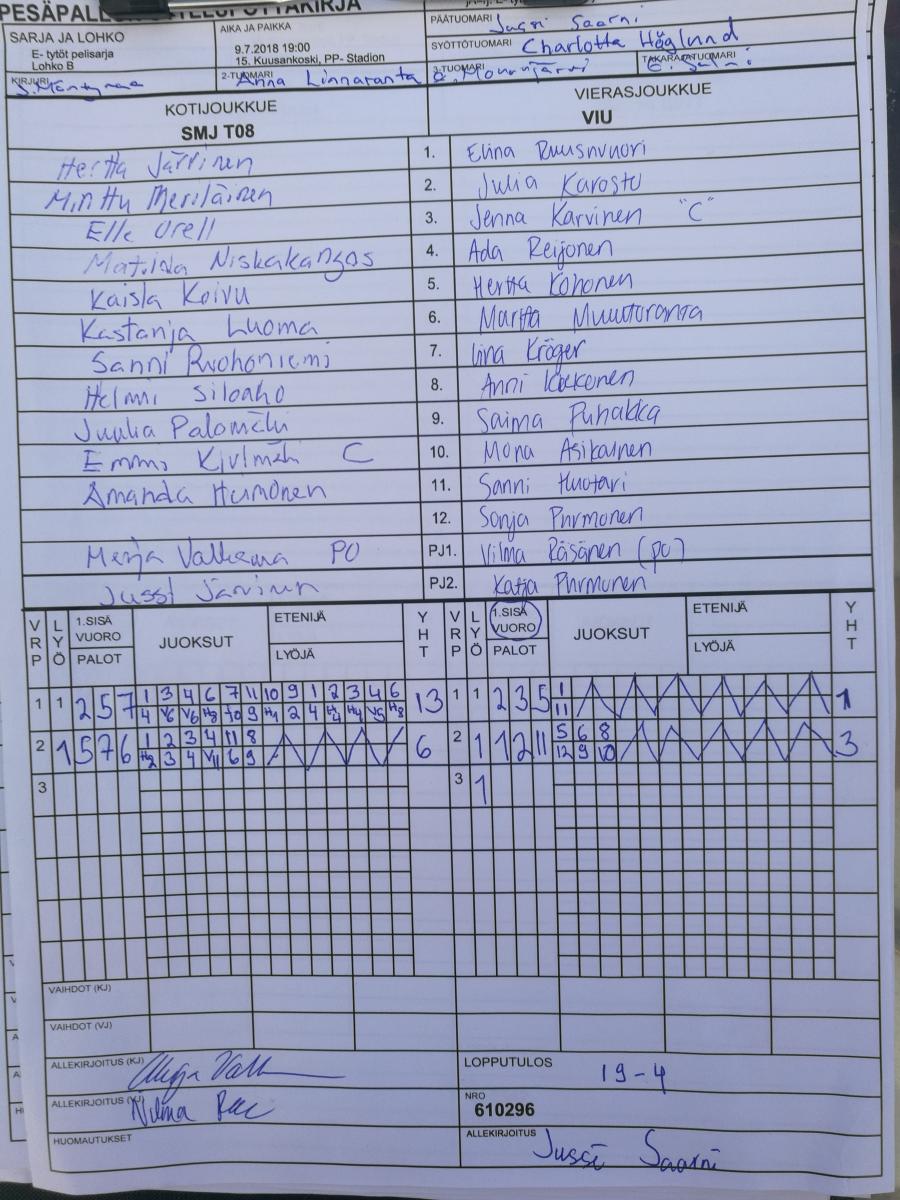 PESÄPALLO
SARJA JA LOHKO
E- tytöt pelisarja
Lohko B
AIKA JA PAIKKA
9.7.2018 19:00
15. Kuusankoski, PP- Stadion
PÄÄTUOMARI Jussi Saarni
SYÖTTÖTUOMARI Charlotta Höglund
KIRJURI
2-TUOMARI Anna Linnaranta
3-TUOMARI
TAKARAJATUOMARI
KOTIJOUKKUE
SMJ T08
VIERASJOUKKUE
VIU
Hertta Järvinen 1. Elina Ruusnvuori
Minttu Meriläinen 2. Julia Karosto
Elle Orell 3. Jenna Karvinen "C"
Matilda Niskakangas 4. Ada Reijonen
Kaisla Koivu 5. Hertta Kohonen
Kastanja Luoma 6. Martta Muuttoranta
Sanni Ruohoniemi 7. Iina Kröger
Helmi Siloaho 8. Anni Kokkonen
Juulia Palomäki 9. Saima Puhakka
Emmi C 10. Mona Asikainen
Amanda Humonen 11. Sanni Huotari
12. Sonja Purmonen
Merja PO PJ1. Vilma Räsänen (PO)
Jussi Järvinen PJ2. Katja Purmonen
VRP LYÖ 1.SISÄ VUORO PALOT JUOKSUT ETENIJÄ LYÖJÄ YHT VRP LYÖ 1.SISÄ VUORO PALOT JUOKSUT ETENIJÄ LYÖJÄ YHT
1 1 2 5 7 1 3 4 6 7 11 10 9 1 2 3 4 6 13 1 1 2 3 5 1 1
4 V6 V6 H8 10 9 H1 2 4 H4 H4 V5 H8 11
2 1 5 7 6 1 2 3 4 11 8 6 2 1 1 12 11 5 6 8 3
H2 3 4 V11 6 9 12 9 10
3 3 1
VAIHDOT (KJ)
VAIHDOT (VJ)
ALLEKIRJOITUS (KJ)
LOPPUTULOS 19-4
ALLEKIRJOITUS (VJ)
NRO
610296
HUOMAUTUKSET
ALLEKIRJOITUS Jussi Saarni